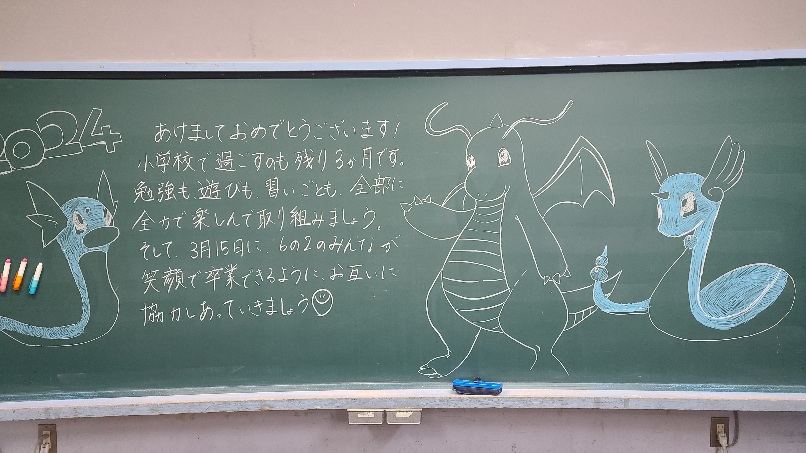 2024
あけましておめでとうございます!
小学校で過ごすのも残り3か月です。
勉強も、遊びも、習いごとも、全部に
全力で楽しんで取り組みましょう。
そして、3月15日に、6の2のみんなが
笑顔で卒業できるように、お互いに
協力しあっていきましょう